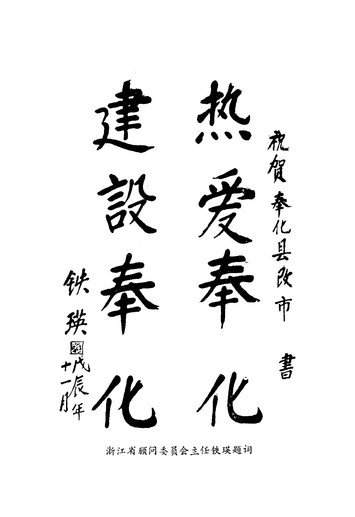 祝贺奉化县改市 书
热爱奉化
建設奉化
铁瑛
戊辰年
十一月
浙江省顾问委员会主任铁瑛题词